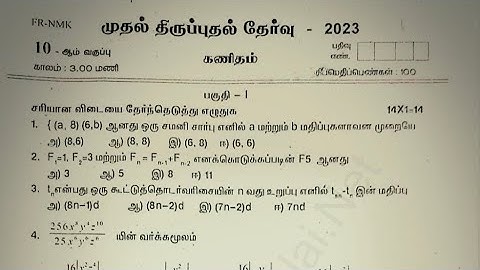 FR-NMK
முதல் திருப்புதல் தேர்வு - 2023
10 - ஆம் வகுப்பு
கணிதம்
பதிவு எண்.
காலம் : 3.00 மணி
மதிப்பெண்கள் : 100
பகுதி – I
சரியான விடையை தேர்ந்தெடுத்து எழுதுக 14X1=14
1. { (a, 8) (6,b) ஆனது ஒரு சமனி சார்பு எனில் a மற்றும் b மதிப்புகளாவன முறையே
அ) (8,6) ஆ) (8, 8) இ) (6, 8) ஈ) (6, 6)
2. F₁=1, F₂=3 மற்றும் Fₙ = Fₙ₋₁+Fₙ₋₂ எனக்கொடுக்கப்படின் F5 ஆனது
அ) 3 ஆ) 5 இ) 8 ஈ) 11
3. tₙ என்பது ஒரு கூட்டுத்தொடர்வரிசையின் n வது உறுப்பு எனில் t₈ₙ-tₙ இன் மதிப்பு
அ) (8n–1)d ஆ) (8n–2)d இ) (7n–2)d ஈ) 7nd
4. 256x⁸y⁴z¹⁰ / 25x⁶y⁶z⁶ யின் வர்க்கமூலம்